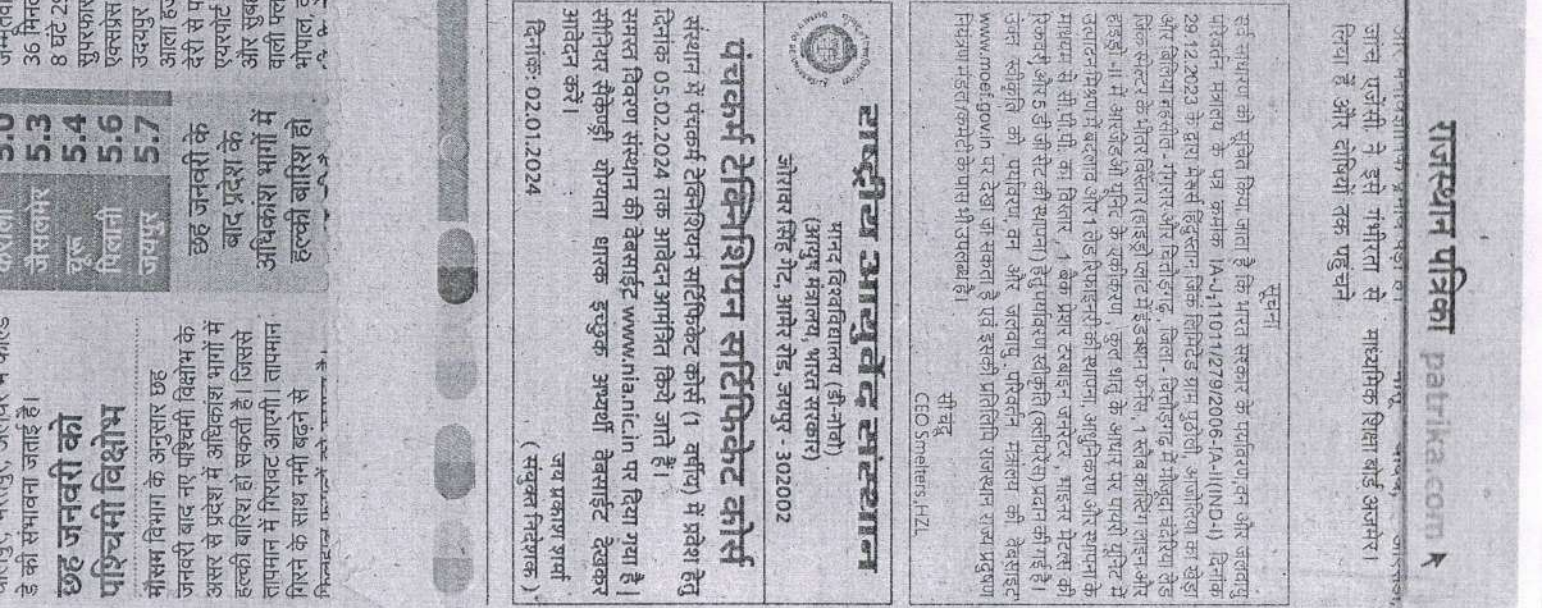 राजस्थान पत्रिका patrika.com
जांच एजेंसी ने इसे गंभीरता से
लिया है और दोषियों तक पहुंचने
माध्यमिक शिक्षा बोर्ड अजमेर।
सूचना
सर्व साधारण को सूचित किया जाता है कि भारत सरकार के पर्यावरण, वन और जलवायु
परिवर्तन मंत्रालय के पत्र क्रमांक IA-J-11011/279/2006-IA-II(IND-I) दिनांक
29.12.2023 के द्वारा मेसर्स हिंदुस्तान जिंक लिमिटेड ग्राम पुठोली, आजोलिया का खेड़ा
और बिलिया तहसील - गंगरार और चित्तौड़गढ़, जिला - चित्तौड़गढ़ में मौजूदा चंदेरिया लेड
जिंक स्मेल्टर के भीतर विस्तार (हाइड्रो प्लांट में इंडक्शन फर्नेस, 1 स्लैब कास्टिंग लाइन और
हाइड्रो -II में आरजेडओ यूनिट के एकीकरण, कुल धातु के आधार पर पायरो यूनिट में
उत्पादन मिश्रण में बदलाव और 1 लेड रिफाइनरी की स्थापना, आधुनिकरण और स्थापना के
माध्यम से सी.पी.पी. का विस्तार, 1 बैक प्रेशर टरबाइन जनरेटर, माइनर मेटल्स की
रिकवरी और 5 डी जी सेट की स्थापना) हेतु पर्यावरण स्वीकृति (क्लीयरेंस) प्रदान की गई है।
उक्त स्वीकृति को पर्यावरण, वन और जलवायु परिवर्तन मंत्रालय की वेबसाइट
www.moef.gov.in पर देखा जा सकता है एवं इसकी प्रतिलिपि राजस्थान राज्य प्रदूषण
नियंत्रण मंडल/कमेटी के पास भी उपलब्ध है।
सी चंदू
CEO Smelters, HZL
राष्ट्रीय आयुर्वेद संस्थान
मानद विश्वविद्यालय (डी-नोवो)
(आयुष मंत्रालय, भारत सरकार)
जोरावर सिंह गेट, आमेर रोड, जयपुर - 302002
पंचकर्म टेक्निशियन सर्टिफिकेट कोर्स
संस्थान में पंचकर्म टेक्निशियन सर्टिफिकेट कोर्स (1 वर्षीय) में प्रवेश हेतु
दिनांक 05.02.2024 तक आवेदन आमंत्रित किये जाते है।
समस्त विवरण संस्थान की वेबसाईट www.nia.nic.in पर दिया गया है।
सीनियर सैकेण्ड्री योग्यता धारक इच्छुक अभ्यर्थी वेबसाईट देखकर
आवेदन करें।
जय प्रकाश शर्मा
दिनांक: 02.01.2024
(संयुक्त निदेशक)
5.0
जैसलमेर 5.3
चूरू 5.4
पिलानी 5.6
जयपुर 5.7
छह जनवरी के
बाद प्रदेश के
अधिकांश भागों में
हल्की बारिश हो
है की संभावना जताई है।
छह जनवरी को
पश्चिमी विक्षोभ
मौसम विभाग के अनुसार छह
जनवरी बाद नए पश्चिमी विक्षोभ के
असर से प्रदेश में अधिकांश भागों में
हल्की बारिश हो सकती है। जिससे
तापमान में गिरावट आएगी। तापमान
गिरने के साथ नमी बढ़ने से
36 मिनट
8 घंटे
उदयपुर
देरी से
और
वाली
भोपाल,